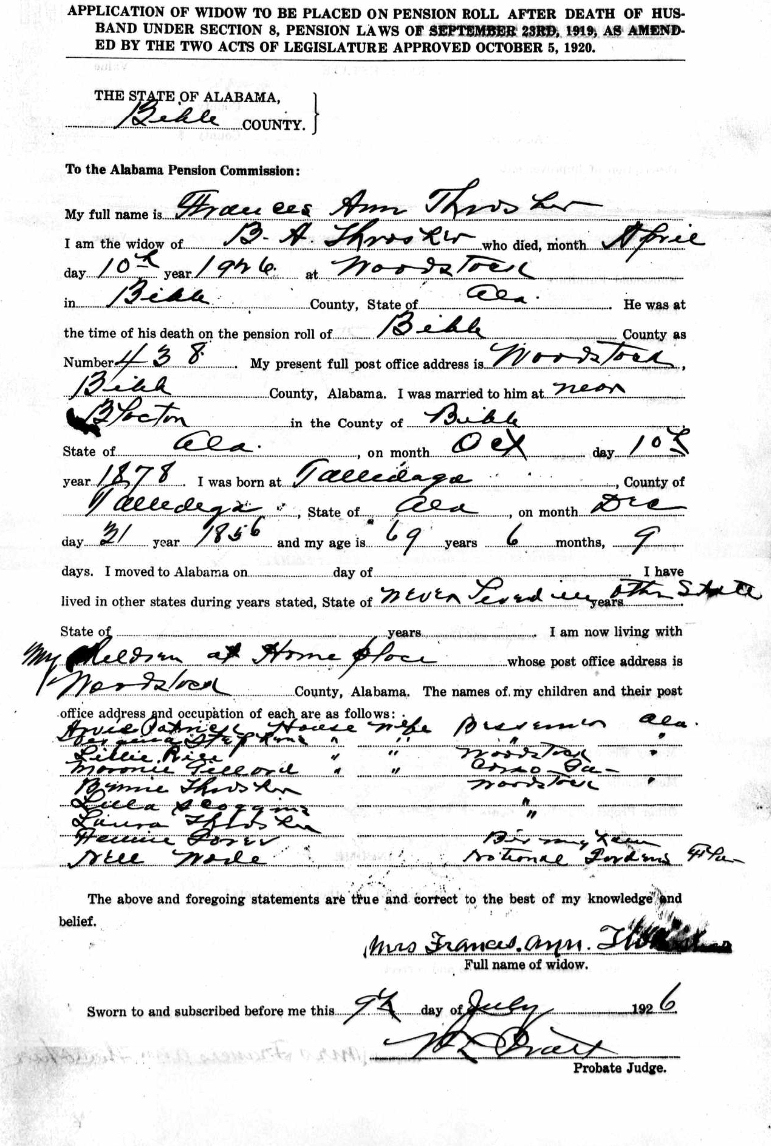 APPLICATION OF WIDOW TO BE PLACED ON PENSION ROLL AFTER DEATH OF HUS-
BAND UNDER SECTION 8, PENSION LAWS OF SEPTEMBER 23RD, 1919, AS AMEND-
ED BY THE TWO ACTS OF LEGISLATURE APPROVED OCTOBER 5, 1920.
THE STATE OF ALABAMA,
Bibb COUNTY.
To the Alabama Pension Commission:
My full name is Frances Ann Thrasher
I am the widow of B. A. Thrasher who died, month April
day 10th year 1926 at Woodstock
in Bibb County, State of Ala. He was at
the time of his death on the pension roll of Bibb County as
Number 438. My present full post office address is Woodstock,
Bibb County, Alabama. I was married to him at near
Blocton in the County of Bibb
State of Ala., on month Oct day 10th
year 1878. I was born at Talledaga, County of
Talledega, State of Ala, on month Dec
day 31 year 1856 and my age is 69 years 6 months, 9
days. I moved to Alabama on day of I have
lived in other states during years stated, State of never lived in years other State
State of years. I am now living with
My children at Home place whose post office address is
Woodstock County, Alabama. The names of my children and their post
office address and occupation of each are as follows:
House wife Bessemer Ala.
" " "
Lillie " " Woodstock "
" " Ga
Thrasher Woodstock "
Lula Scoggins "
Laura Thrasher
Birmingham
Nell Wade National Gardens
The above and foregoing statements are true and correct to the best of my knowledge and
belief.
Mrs Frances. Ann. Thrasher
Full name of widow.
Sworn to and subscribed before me this 9th day of July 1926
W L Pratt
Probate Judge.